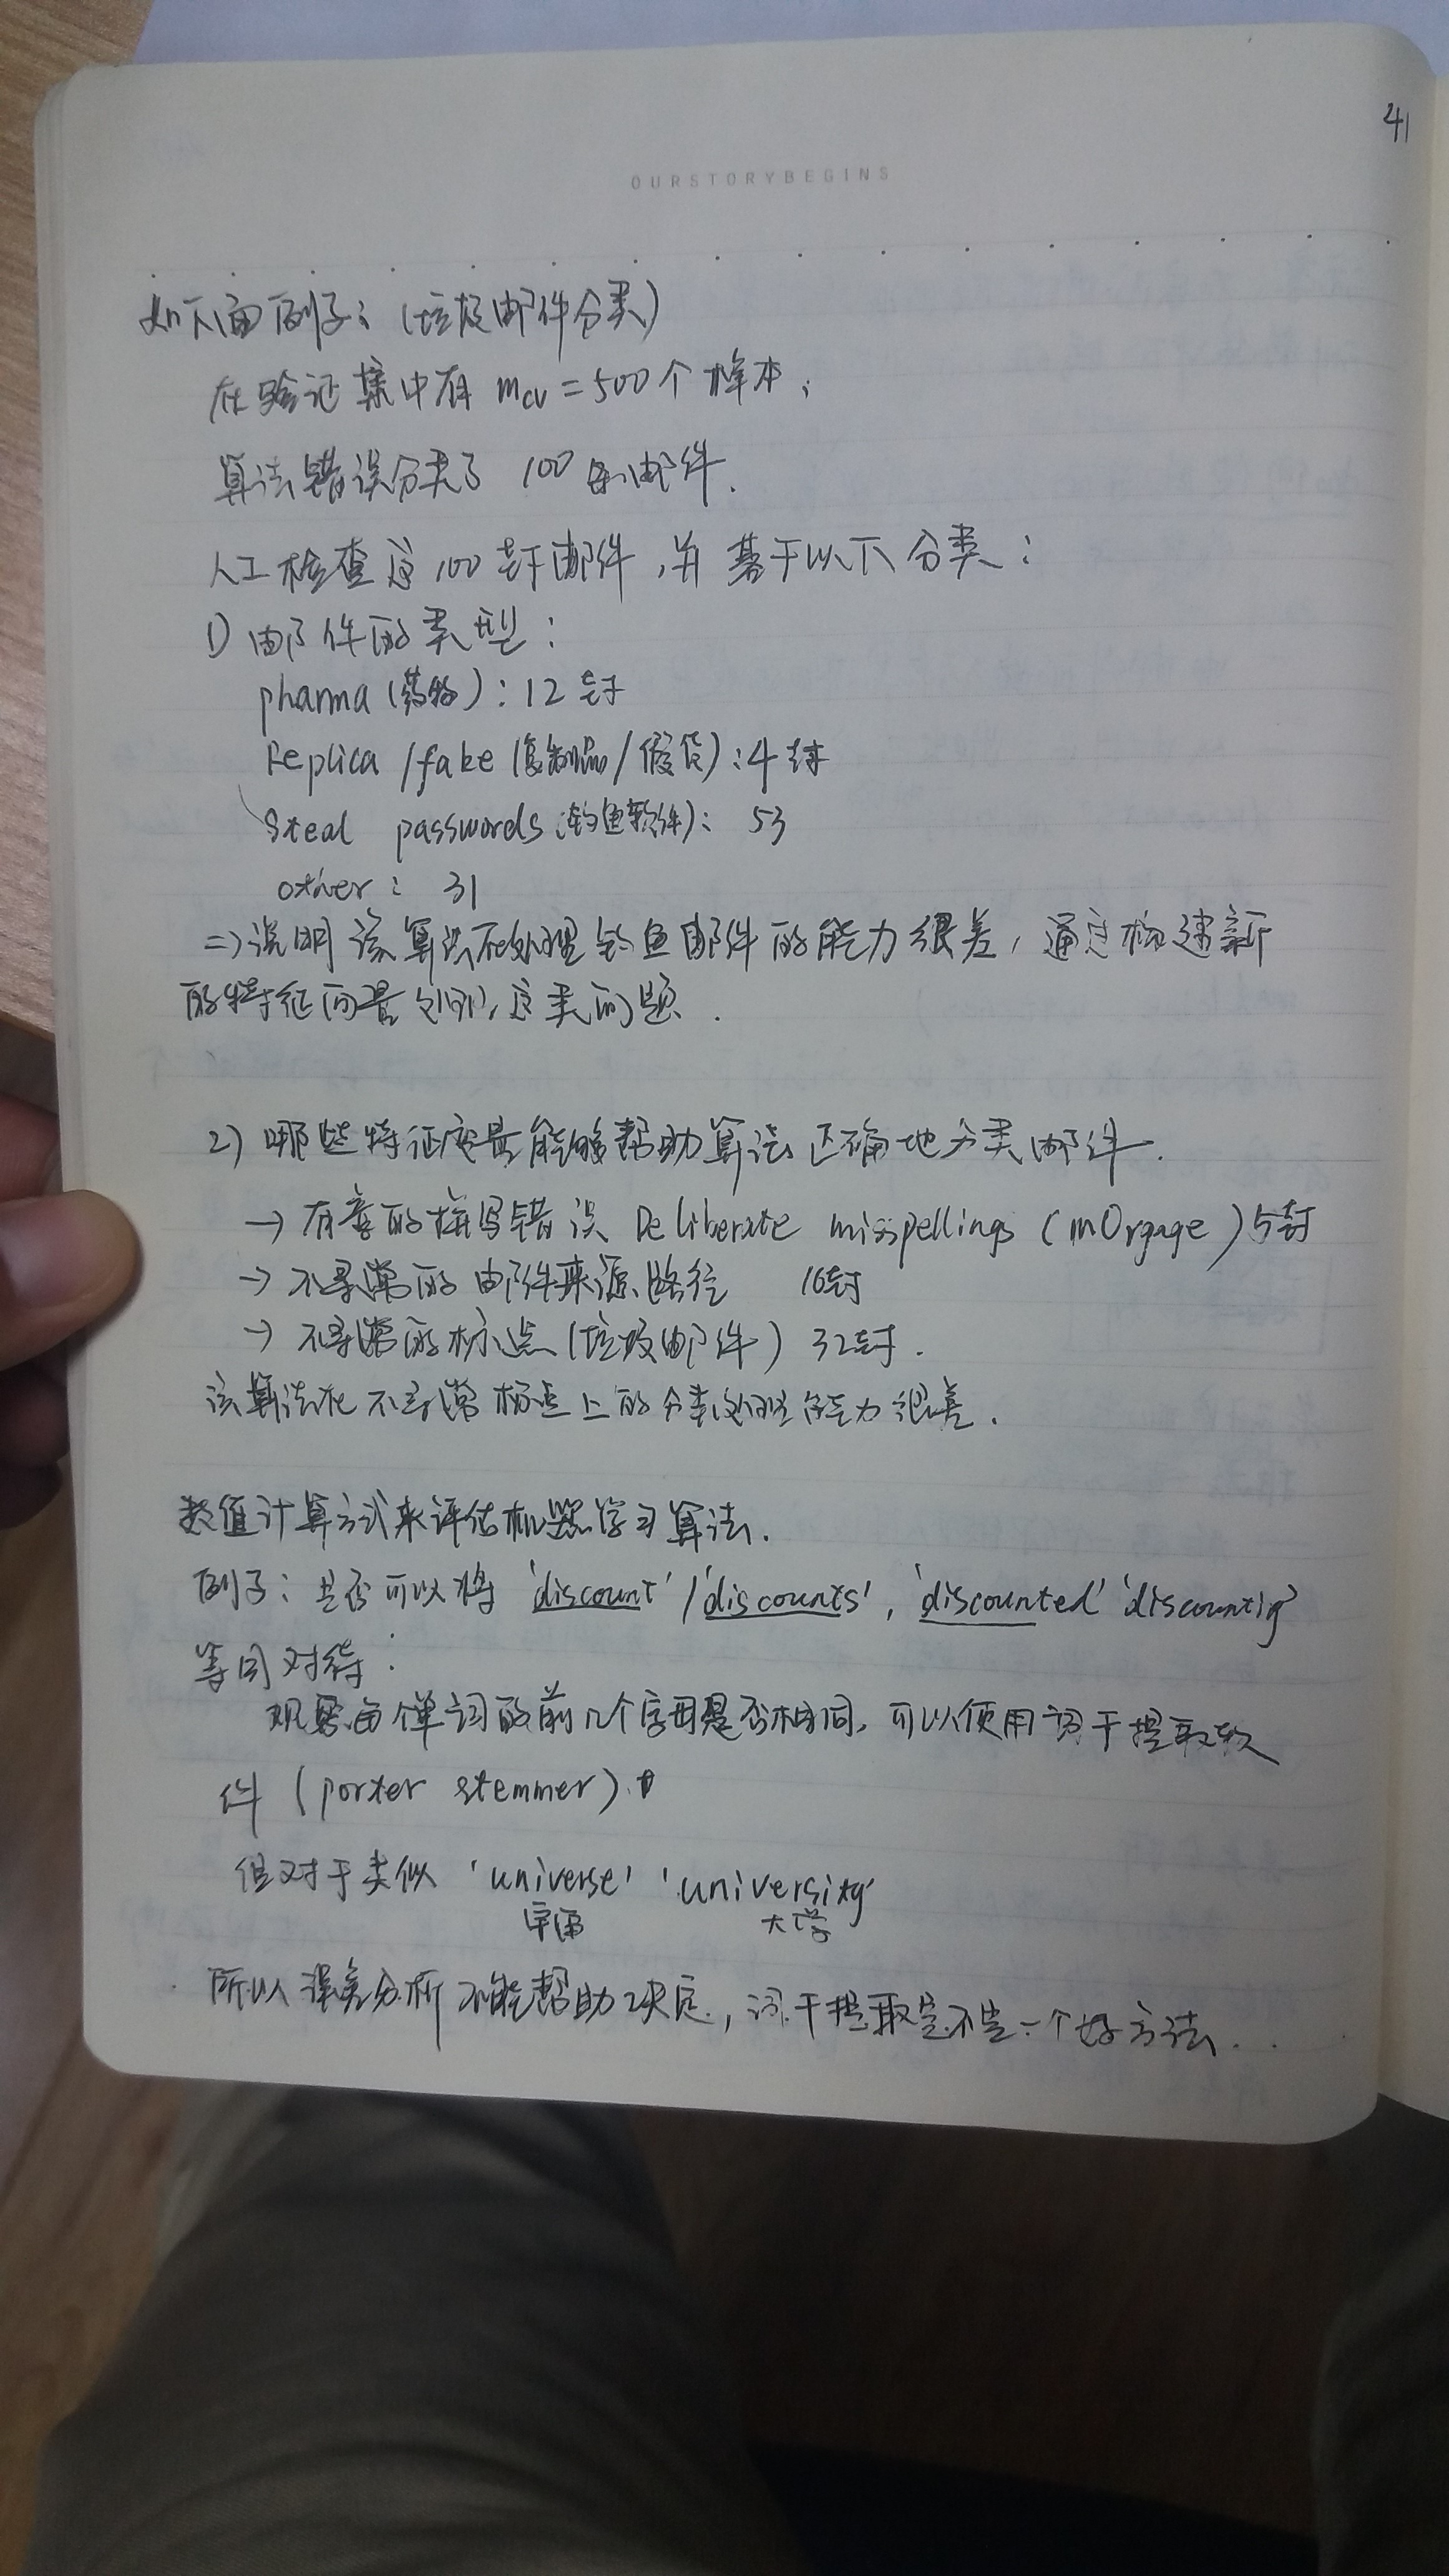 41
OURSTORYBEGINS
如下面例子：（垃圾邮件分类）
在验证集中有 mcv = 500个样本；
算法错误分类了 100 条邮件.
人工检查这100封邮件，并基于以下分类：
1) 邮件的类型：
pharma (药物)：12封
Replica /fake (复制品/假货)：4封
Steal passwords (钓鱼软件)： 53
other： 31
=> 说明该算法在处理钓鱼邮件的能力很差，通过构建新
的特征向量处理这类问题.
2) 哪些特征度量能够帮助算法正确地分类邮件.
→ 有意的拼写错误 Deliberate misspellings (m0rgage) 5封
→ 不寻常的邮件来源路径 16封
→ 不寻常的标点（垃圾邮件） 32封.
该算法在不寻常标点上的分类处理能力很差.
数值计算方式来评估机器学习算法.
例子：是否可以将 'discount' / 'discounts', 'discounted' 'discountig'
等同对待：
观察每个单词的前几个字母是否相同，可以使用词干提取软
件 (porter stemmer).
但对于类似 'universe' 'university'
宇宙 大学
所以误差分析不能帮助决定，词干提取是不是一个好方法.